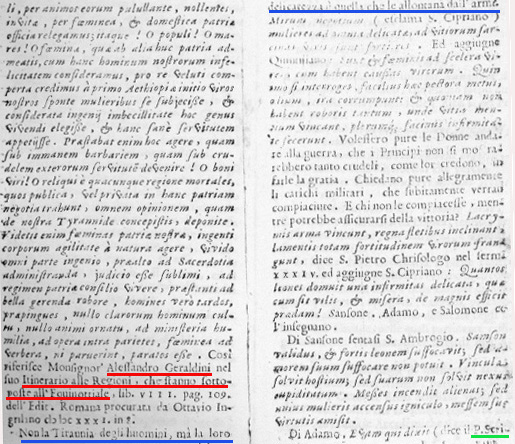 li, per animo eorum palustante, nollentes,
invita, per fœminea, & domestica patriæ
officia relegamus; itaque ! O populi ! O ma-
res! O fœmina, quæ ab alia huc patria ad-
meatis, cum hanc hominum nostrorum infe-
licitatem consideramus, pro re veluti com-
perta credimus à primo Æthiopiæ initio viros
nostros sponte mulieribus se subjecisse, &
considerata ingenij imbecillitate hoc genus
vivendi elegisse, & hanc sanè servitutem
appetijsse. Præstabat enim hoc agere, quam
sub immanem barbariem, quam sub cru-
delem exterorum servitutē devenire! O boni
viri! O reliquæ quæcunque regione mortales,
quos publica vel privata in hanc patriam
negotia trahunt, omnem opinionem, quam
de nostra Tyrannide concepistis, deponite,
Videtis enim fœminas patriæ nostræ, ingenti
corporum agilitate à natura agere, vivido
omni parte ingenio, præalto ad Sacerdotia
administranda, judicio esse sublimi, ad
regimen patriæ consilio vivere, præstanti ad
bella gerenda robore, homines verò tardos,
prapingues, nullo clarorum hominum cul-
tu, nullo animi ornatu, ad ministeria hu-
milia, ad opera intra parietes, fœminea ad
verbera, ni paruerint, paratos esse. Così
riferisce Monsignor Alessandro Geraldini nel
suo Itinerario alle Regioni, che stanno sotto-
poste all'Equinottiale, lib. VIIII. pag. 109.
dell'Edit. Romana procurata da Ottavio In-
gnilano cIɔ Iɔc XXXI. in 8.
Non la Tirannia degli huomini, mà la loro
delicatezza è quella che le allontana dall'arme.
Mirum negotium (esclama S. Cipriano)
mulieres ad omnia delicatæ, ad vitiorum sar-
cinas viris sunt fortiores. Ed aggiugne
Quintiliano: Sunt & fœminis ad scelera vi-
res, cum habent causas virorum. Quin
imo si interroges, facilius hæc pectora metus,
odium, ira corrumpunt: & quoniam non
habent roboris tantum, unde vitia men-
tium vincant, plerumq; facinus infirmita-
te fecerunt. Volessero pure le Donne anda-
re alla guerra, che i Principi non si mo-
rebbero tanto crudeli, come lor credono, in
farle la gratia. Chiedano pure allegramente
li carichi militari, che subitamente verran
compiaciute. E chi non le compiacesse, men-
tre potrebbe assicurarsi della vittoria? Lacry-
mis arma vincunt, regna flectibus inclinant,
lamentis totam fortitudinem virorum fran-
gunt, dice S. Pietro Chrisologo nel serm.
XXXIV. ed aggiugne S. Cipriano: Quantos
leones domuit una infirmitas delicata, quæ
cum sit vilis, & misera, de magnis efficit
prædam! Sansone, Adamo, e Salomone ce
l'insegnano.
Di Sansone sentasi S. Ambrogio. Samson
validus, & fortis leonem suffocavit, sed a-
morem suum suffocare non potuit. Vincula
solvit hostium; sed suarum non solvit nexus
cupiditatum. Messes incendit alienas; sed
unius mulieris accensus igniculo, messem suæ
virtutis amisit.
Di Adamo, Evam qui dixit (dice il P. Scri-